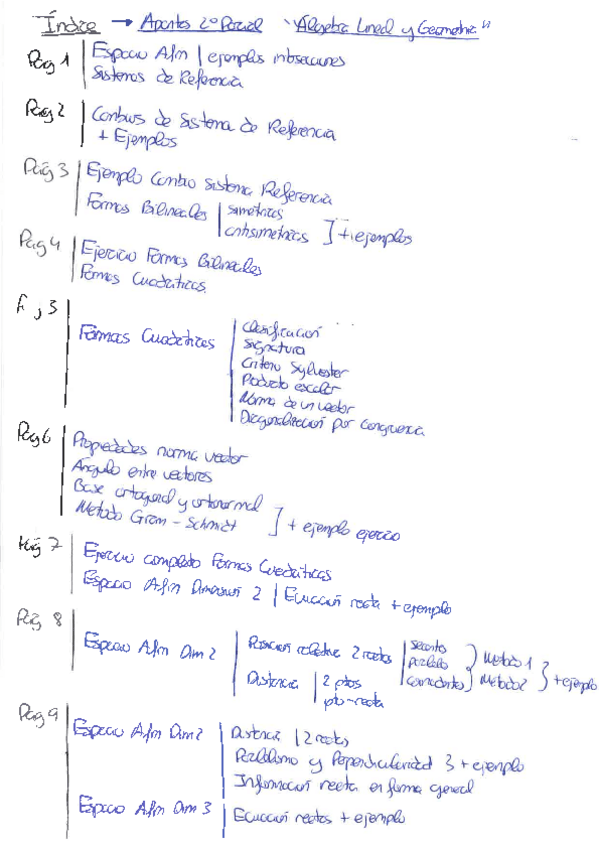 Índice → Apuntes 2º Parcial "Álgebra Lineal y Geometría"
Pág 1 Espacio Afín | ejemplos intersecciones
Sistemas de Referencia
Pág 2 Cambios de Sistema de Referencia
+ Ejemplos
Pág 3 Ejemplo Cambio Sistema Referencia
Formas Bilineales | simétricas
antisimétricas ] + ejemplos
Pág 4 Ejercicio Formas Bilineales
Formas Cuadráticas
Formas Cuadráticas | Clasificación
Signatura
Criterio Sylvester
Producto escalar
Norma de un vector
Diagonalización por congruencia
Pág 6 Propiedades norma vector
Ángulo entre vectores
Base ortogonal y ortonormal
Método Gram - Schmidt ] + ejemplo ejercicio
Pág 7 Ejercicio completo Formas Cuadráticas
Espacio Afín Dimensión 2 | Ecuación recta + ejemplo
Pág 8 Espacio Afín Dim 2 | Posición relativa 2 rectas | secantes
paralelas
coincidentes } Método 1
Método 2 } + ejemplo
Distancia | 2 ptos
pto-recta
Pág 9 Espacio Afín Dim 2 | Distancia | 2 rectas
Paralelismo y Perpendicularidad 3 + ejemplo
Información recta en forma general
Espacio Afín Dim 3 | Ecuación rectas + ejemplo